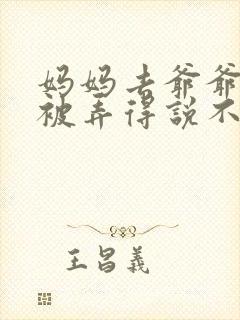 妈妈去爷爷
被弄得說不
王昌義